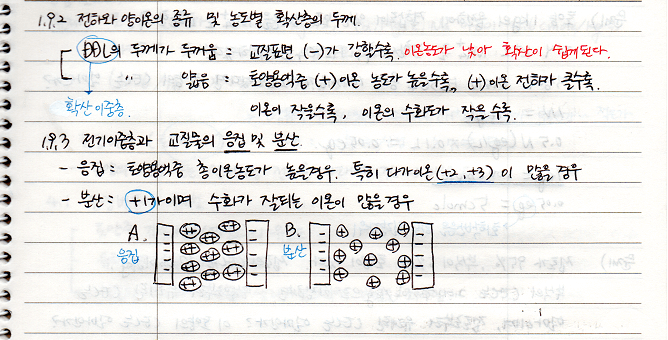 1.9.2 전하와 양이온의 종류 및 농도별 확산층의 두께.
DDL의 두께가 두꺼움 = 교질표면 (-)가 강할수록. 이온농도가 낮아 확산이 쉽게된다.
〃 얇음 = 토양용액중 (+)이온 농도가 높을수록, (+)이온 전하가 클수록.
확산이중층. 이온이 작을수록, 이온의 수화도가 작을수록.
1.9.3 전기이중층과 교질들의 응집 및 분산.
- 응집 = 토양용액중 총이온농도가 높을경우. 특히 다가이온(+2, +3)이 많을 경우
- 분산 = +1가이며 수화가 잘되는 이온이 많을경우
A. B.
응집 분산